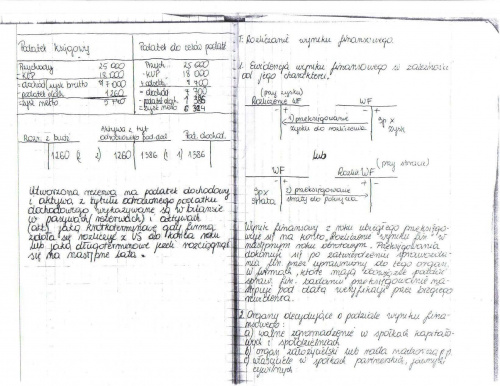 Podatek Księgowy
Przychody 25 000
- KUP 18 000
= dochód/zysk brutto 7 000
- podatek doch. 1260
= zysk netto 5 740
Podatek do celów podat.
Przych. 25 000
- KUP 18 000
= dochód 7 700
- podatek doch. 1 386
= zysk netto 6 314
Rozr. z budż.
Aktywa z tyt. odroczonego pod. doch.
Pod. dochod.
1260 (2 2) 1260 1386 (1 1) 1386
Utworzona rezerwa na podatek dochodowy
i aktywa z tytułu odroczonego podatku
dochodowego wykazywane są w bilansie
(w pasywach/rezerwach) i (aktywach
akt.) jako krótkoterminowe gdy firma
zdoła się rozliczyć z US do końca roku
lub jako długoterminowe jeśli rozciągnęt
się na następne lata.
T: Rozliczanie wyniku finansowego.
1. Ewidencja wyniku finansowego w zależności
od jego charakteru.
(przy zysku)
Rozliczenie WF
WF
- +
- +
1) przeksięgowanie
zysku do rozliczenia
Sp x
zysk
lub
WF
Rozlicz WF (przy stracie)
- +
- +
Sp x
strata
1) przeksięgowanie
straty do pokrycia
Wynik finansowy z roku ubiegłego przeksięgo-
wuje się na konto "Rozliczenie wyniku fin" w
następnym roku obrotowym. Przeksięgowania
dokonuje się po zatwierdzeniu sprawozda-
nia fin przez uprawniony do tego organ,
w firmach, które mają obowiązek podać
spraw. fin. badaniu przeksięgowanie na-
stępuje pod datą weryfikacji przez biegłego
rewidenta.
2. Organy decydujące o podziale wyniku finan-
sowego:
a) walne zgromadzenie w spółkach kapitało-
wych i spółdzielniach
b) organ założycielski lub rada nadzorcza p.p.
c) właściciele w spółkach partnerskich, jawnych i
cywilnych